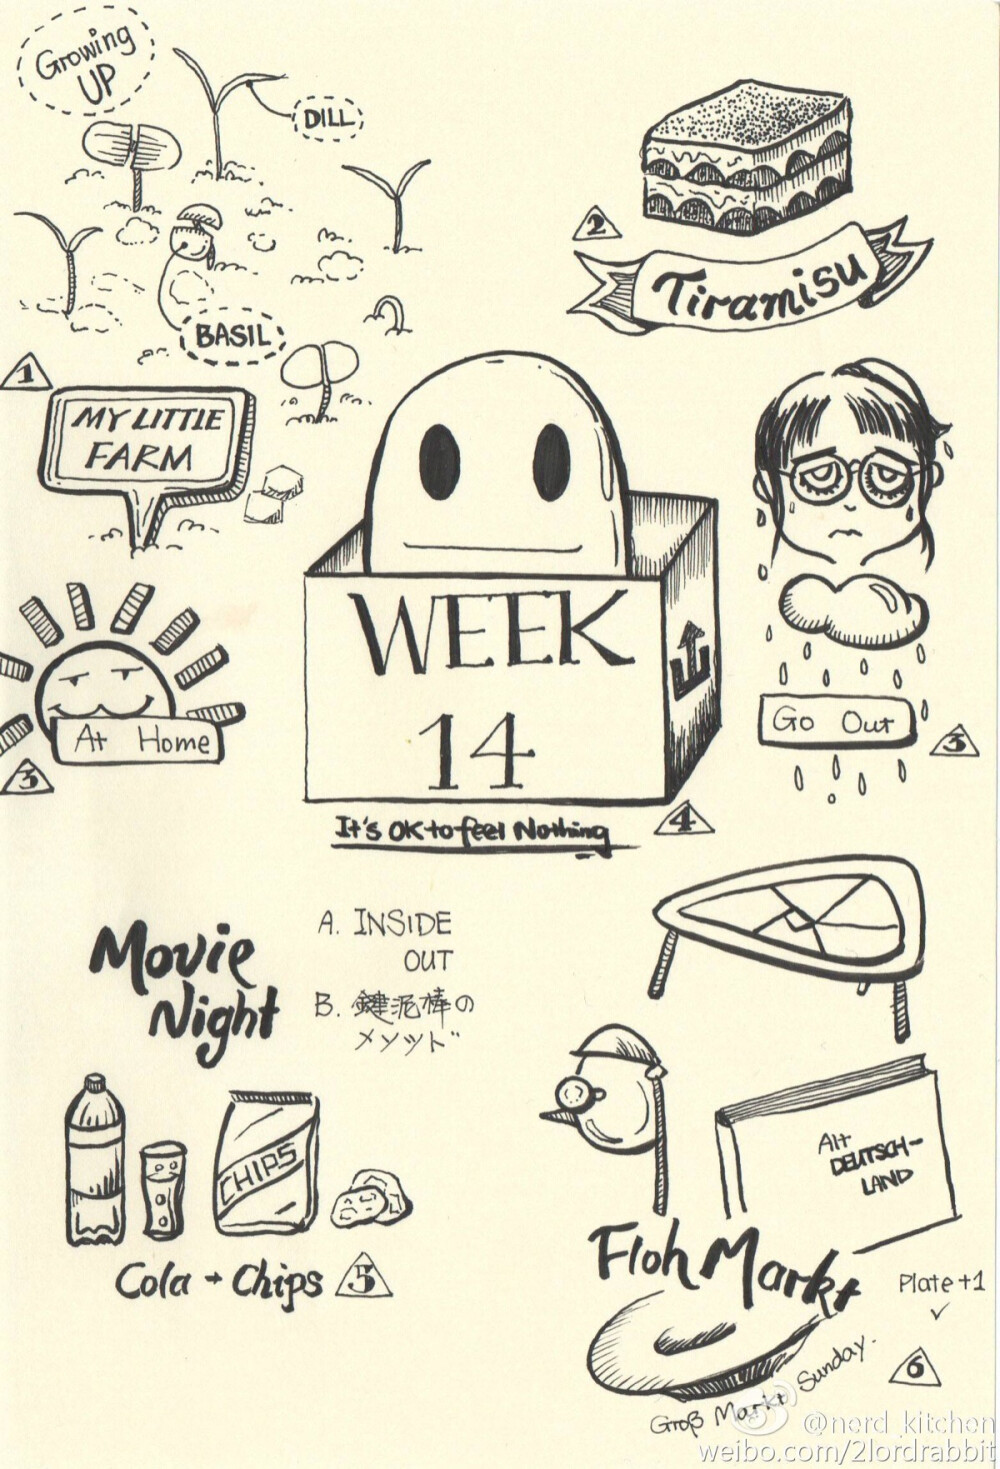 Growing
UP
DILL
BASIL
1
MY LITTLE
FARM
2
Tiramisu
At Home
3
Go Out
3
WEEK
14
It's OK to feel Nothing
4
Movie
Night
A. INSIDE
OUT
B. 鍵泥棒の
メソッド
CHIPS
Cola + Chips
5
Alt
DEUTSCH-
LAND
Floh Markt
Plate +1
Groß Markt Sunday.
6
@nerd_kitchen
weibo.com/2lordrabbit